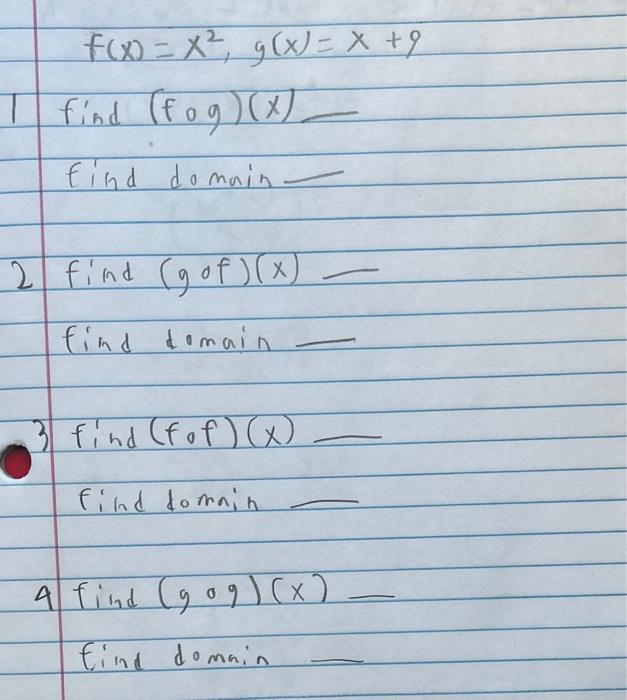 f(x) = x², g(x) = x + 9
1 find (fog)(x) —
find domain —
2 find (gof)(x) —
find domain —
3 find (fof)(x) —
find domain —
4 find (gog)(x) —
find domain —